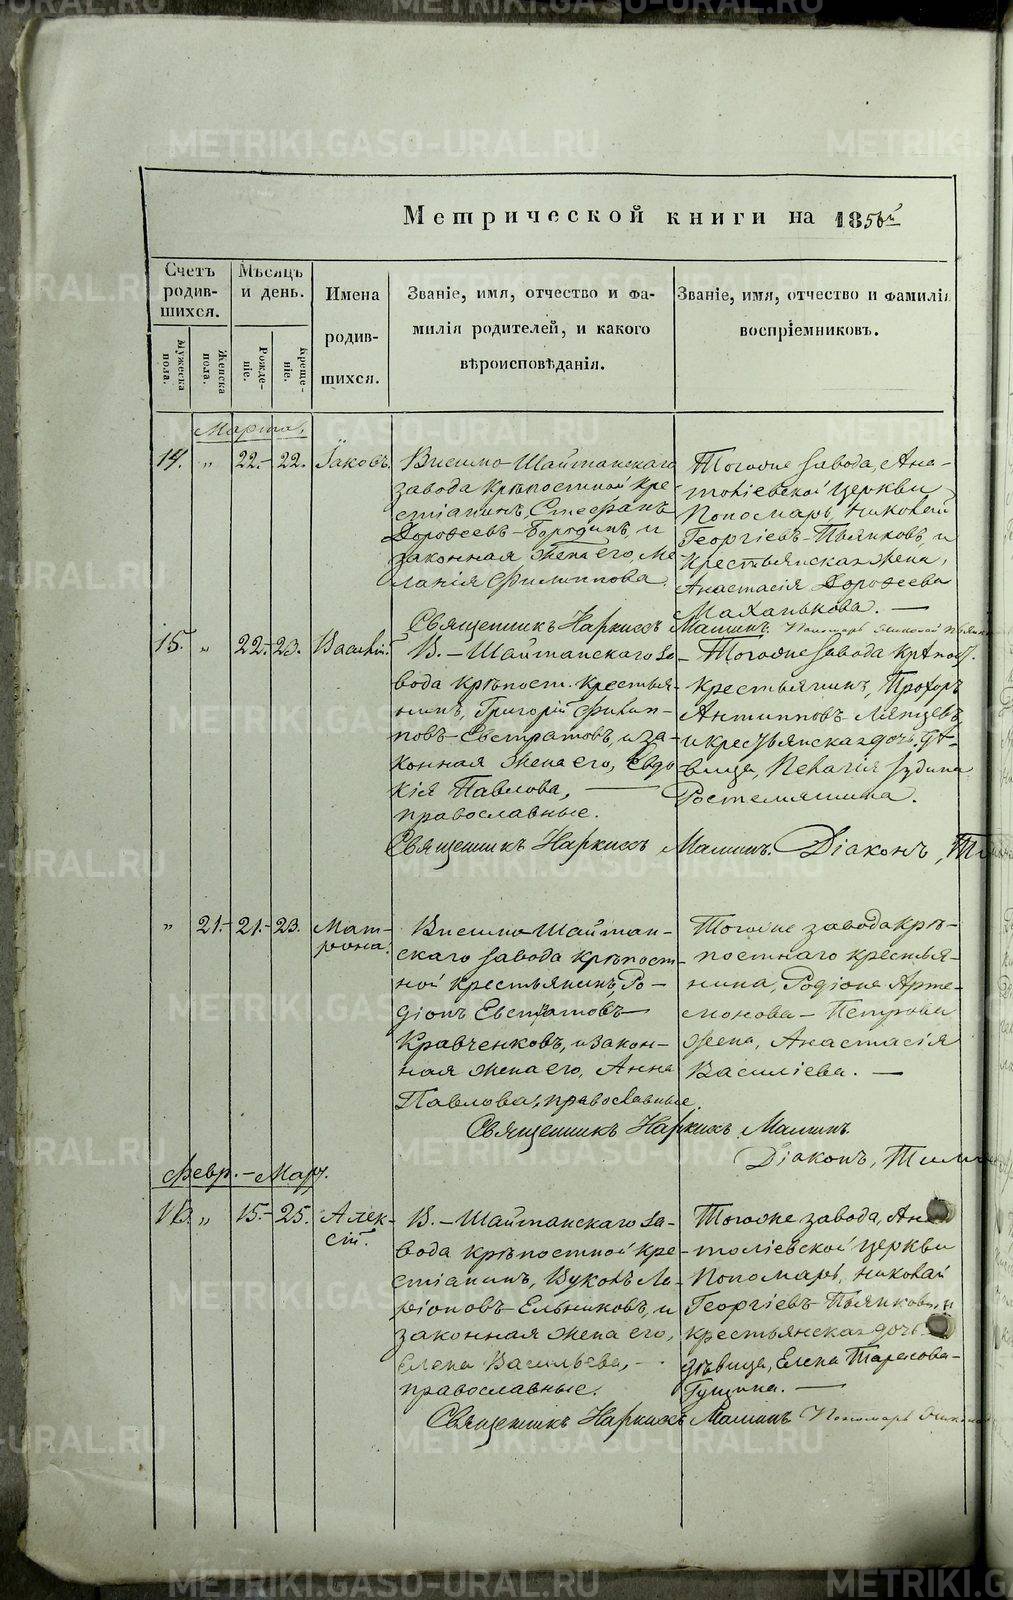 METRIKI.GASO-URAL.RU
Метрической книги на 1856й
Счетъ родив-шихся.
Мужеска пола.
Женска пола.
Мѣсяцъ и день.
Рожде-ніе.
Креще-ніе.
Имена родив-шихся.
Званіе, имя, отчество и фа-
милія родителей, и какого
вѣроисповѣданія.
Званіе, имя, отчество и фамилія
воспріемниковъ.
Марта.
14. „ 22.- 22. Іаковъ.
Висимо Шайтанскаго
завода крѣпостной кре-
стіанинъ Стефанъ
Дорофеевъ Бородинъ, и
законная жена его, Ме
ланія Филиппова.
Тогоже завода, Ана-
толіевской церкви
Пономарь Николай
Георгіевъ Пьянковъ, и
крестьянская жена,
Анастасія Дорофеева
Маханькова. —
Священникъ Наркиссъ Мамин. Пономарь Николай Пьянк
15. „ 22.- 23. Василій.
В.- Шайтанскаго за-
вода крѣпост. крестья-
нинъ, Григорій Филип-
повъ Евстратовъ, и за-
конная жена его, Евдо
кія Павлова, —
православные.
Тогоже завода крѣпост.
крестьянинъ, Прохоръ
Антиповъ Ляпцевъ,
и крестьянская дочь дѣ-
вица, Пелагія Іудина
Ростемяшина.
Священникъ Наркиссъ Маминъ. Діаконъ, Ти
„ 21.- 21.- 23. Мат-
рона.
Висимо Шайтан-
скаго завода крѣпост-
ной крестьянинъ, Ро-
діонъ Евстратовъ
Кравченковъ, и закон-
ная жена его, Анна
Павлова, православные.
Тогоже завода крѣ-
постнаго крестья-
нина, Родіона Арте-
монова- Петрова
жена, Анастасія
Василіева. —
Священникъ Наркиссъ Маминъ.
Діаконъ, Тим
Февр.- Март.
16. „ 15.- 25. Алек-
сій.
В.- Шайтанскаго за-
вода крѣпостной кре-
стіанинъ, Вуколъ Ла-
ріоновъ Ельниковъ, и
законная жена его,
Елена Васильева, -
православные.
Тогоже завода, Ана
толіевской церкви
Пономарь, Николай
Георгіевъ Пьянковъ, и
крестьянская дочь
дѣвица, Елена Тарасова-
Гущина. —
Священникъ Наркиссъ Маминъ Пономарь Никола